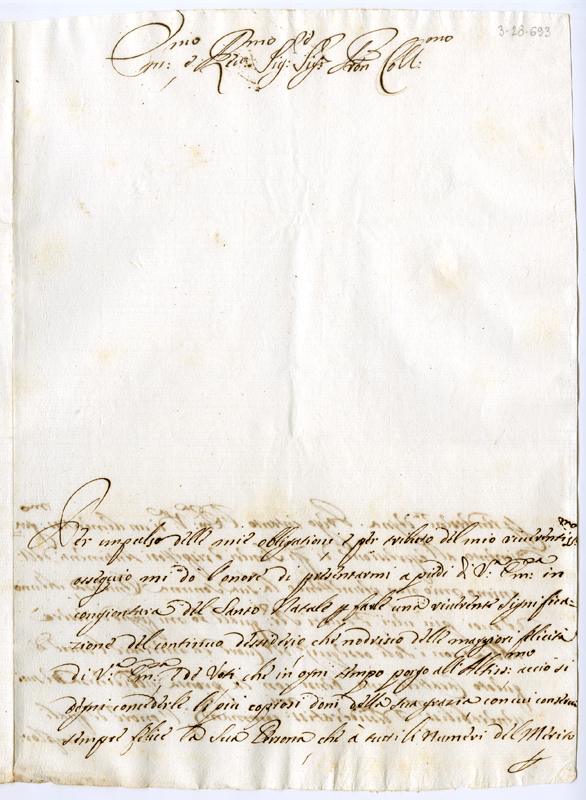 3-28-693
Em:mo e Re:mo Sig:r Sig:r Pron Coll:mo
Per impulso delle mie obligationi, e per tributo del mio riuerentiss:mo
ossequio mi dò l'onore di presentarmi a piedi di V.ra Em:za in
congiontura del Santo Natale p farle una riuerente significa-
zione del continuo desiderio che nodrisco delle maggiori felicità
di V.ra Em:za, e de Voti, che in ogni tempo porgo all' Altiss:mo acciò si
degni concederle li più copiosi doni della sua grazia, con cui conserui
sempre felice la Sua Persona, che à tutti li numeri del Merito